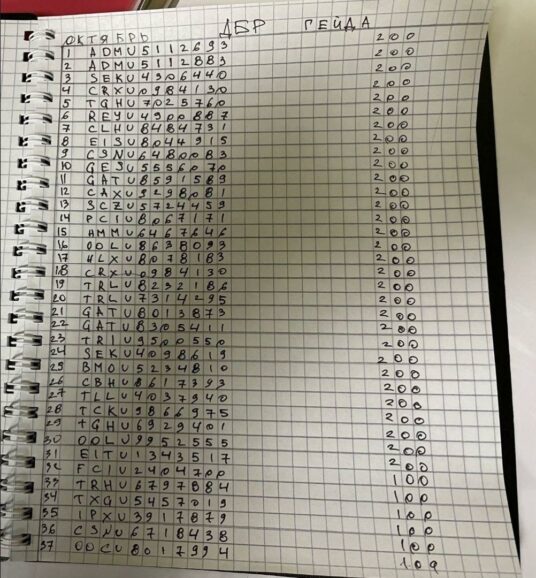 ДБР ГЕЙДА
ОКТЯБРЬ
1 ADMU5112693 200
2 ADMU5112883 200
3 SEKU4906440 200
4 CRXU0984130 200
5 TGHU7025760 200
6 REYU4900887 200
7 CLHU8484731 200
8 EISU8044915 200
9 CSNU6480083 200
10 GESU5556070 200
11 GATU8591589 200
12 CAXU9298081 200
13 SCZU5724459 200
14 PCIU8067171 200
15 HMMU6467646 200
16 OOLU8638093 200
17 HLXU8078183 200
18 CRXU0984130 200
19 TRLU8232186 200
20 TRLU7314295 200
21 GATU8013873 200
22 GATU8305411 200
23 TRIU9500550 200
24 SEKU4098619 200
25 BMOU5234810 200
26 CBHU8617393 200
27 TLLU4037940 200
28 TCKU9866975 200
29 TGHU6929401 200
30 OOLU9952555 200
31 EITU1343517 200
32 FCIU2404700 200
33 TRHU6797884 100
34 TXGU5457019 100
35 IPXU3917879 100
36 CSNU6718438 100
37 OOCU8017994 100